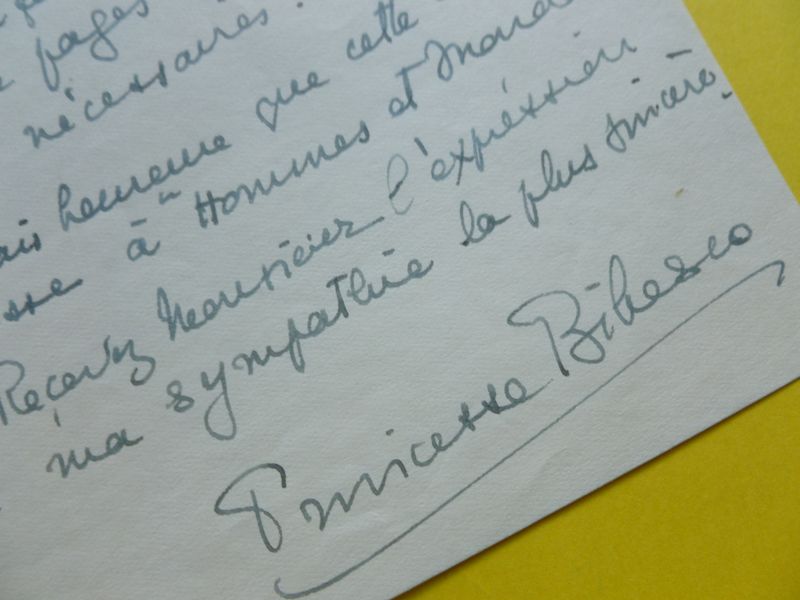 pages
nécessaires.
heureuse que cette
sse à "Hommes et Mond
Recevez Monsieur l'expréssion
ma sympathie la plus sincère.
Princesse Bibesco